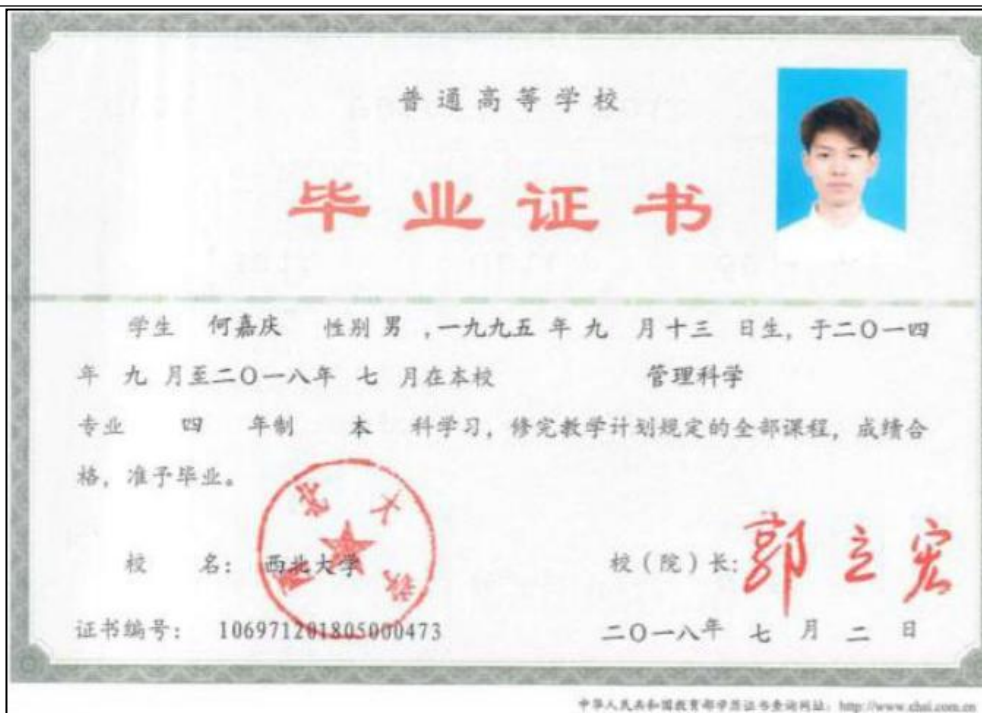 普通高等学校
毕业证书
学生 何嘉庆 性别 男 ，一九九五 年 九 月 十三 日生，于二〇一四
年 九 月至二〇一八年 七 月在本校 管理科学
专业 四 年制 本 科学习，修完教学计划规定的全部课程，成绩合
格，准予毕业。
校 名： 西北大学
校（院）长：郭立宏
证书编号： 106971201805000473
二〇一八年 七 月 二 日
中华人民共和国教育部学历证书查询网址：http://www.chsi.com.cn